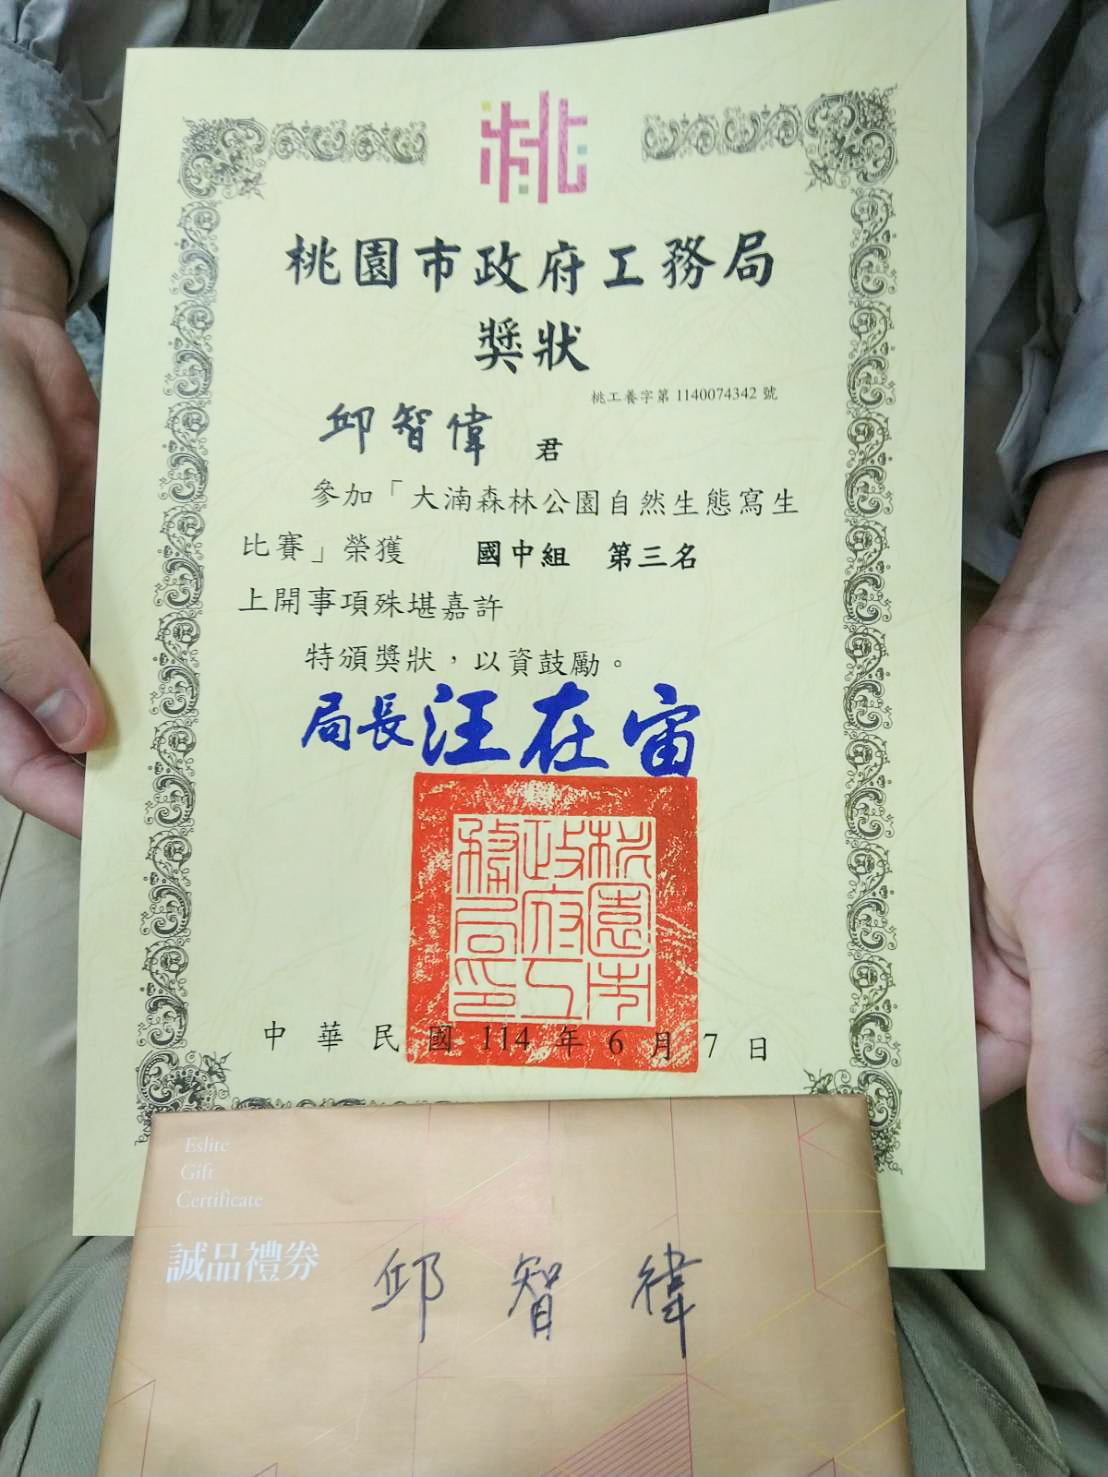 桃
桃園市政府工務局
獎狀
桃工養字第 1140074342 號
邱智偉 君
參加「大湳森林公園自然生態寫生
比賽」榮獲 國中組 第三名
上開事項殊堪嘉許
特頒獎狀，以資鼓勵。
局長汪在宙
桃園市政府工務局印
中華民國 114 年 6 月 7 日
Eslite
Gift
Certificate
誠品禮券 邱智偉